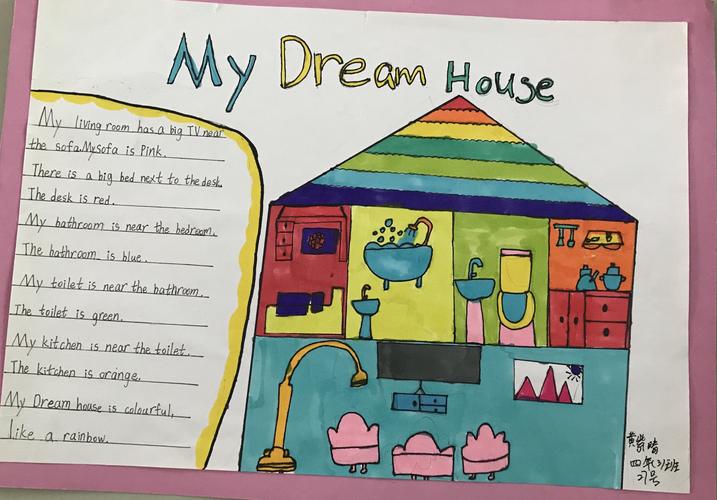 My Dream House
My living room has a big TV near
the sofa.My sofa is Pink.
There is a big bed next to the desk.
The desk is red.
My bathroom is near the bedroom.
The bathroom is blue.
My toilet is near the bathroom.
The toilet is green.
My kitchen is near the toilet.
The kitchen is orange.
My Dream house is colourful,
like a rainbow.
黄紫晴
四年(3)班
27号